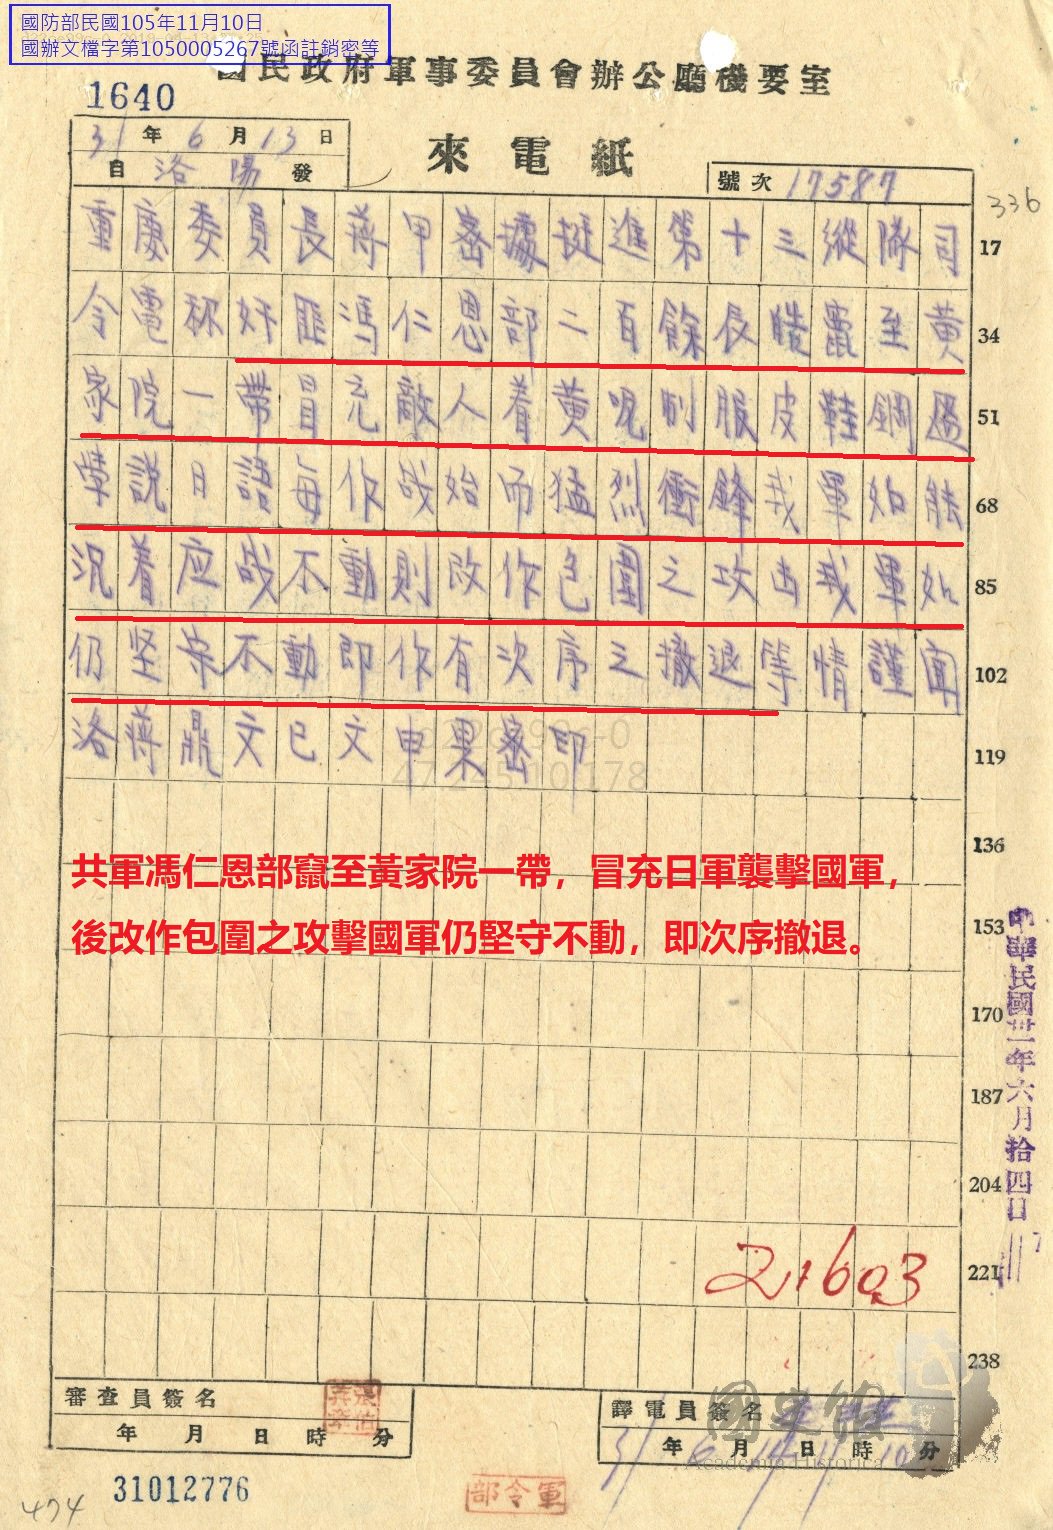 國防部民國105年11月10日
國辦文檔字第1050005267號函註銷密等
國民政府軍事委員會辦公廳機要室
1640
31年6月13日
自洛陽發
來電紙
號次 17587
336
重慶委員長蔣甲密據挺進第十三縱隊司 17
令電称奸匪馮仁恩部二百餘長皓竄至黃 34
家院一帶冒充敵人着黃呢制服皮鞋鋼盔 51
常說日語每作战始而猛烈衝鋒我軍如能 68
沉着应战不動則改作包圍之攻击我軍如 85
仍坚守不動即作有次序之撤退等情謹聞 102
洛蔣鼎文已文申果密印 119
47.245.10.178
136
共軍馮仁恩部竄至黃家院一帶，冒充日軍襲擊國軍，
後改作包圍之攻擊國軍仍堅守不動，即次序撤退。
153
170
187
204
221
238
中華民國卅一年六月拾四日
21603
審查員簽名
年 月 日 時 分
譯電員簽名
31年6月14日11時10分
國史館
Academia Historica
31012776
軍令部
474